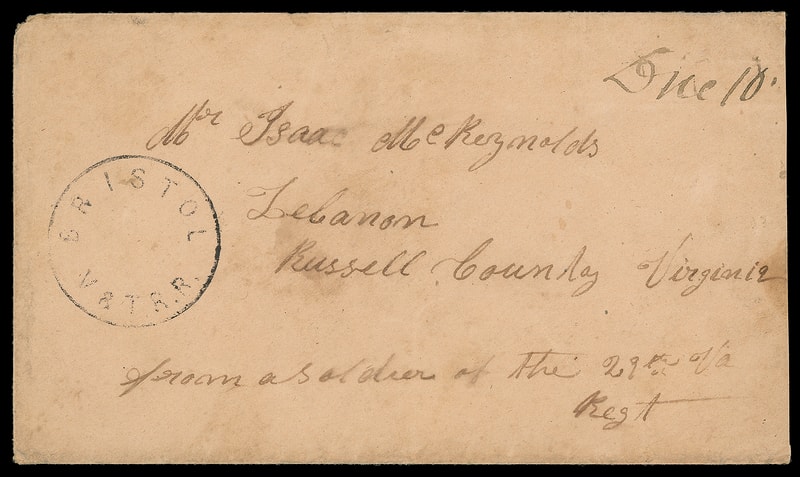 Due 10.
Mr Isaac McReynolds
Lebanon
Russell County Virginia
BRISTOL
V & T.R.R.
from a soldier of the 29th Va
Regt